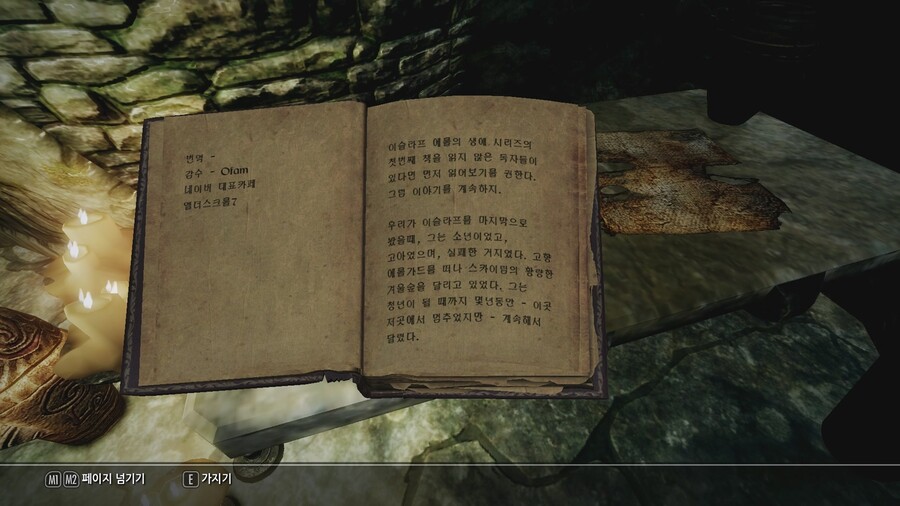 번역 -
감수 - Ofam
네이버 대표카페
엘더스크롤7
이슬라프 에롤의 생애 시리즈의
첫번째 책을 읽지 않은 독자들이
있다면 먼저 읽어보기를 권한다.
그럼 이야기를 계속하지.
우리가 이슬라프를 마지막으로
봤을때, 그는 소년이었고,
고아였으며, 실패한 거지였다. 고향
에롤가드를 떠나 스카이림의 황량한
겨울숲을 달리고 있었다. 그는
청년이 될 때까지 몇년동안 - 이곳
저곳에서 멈추었지만 - 계속해서
달렸다.
M1 M2 페이지 넘기기 E 가지기